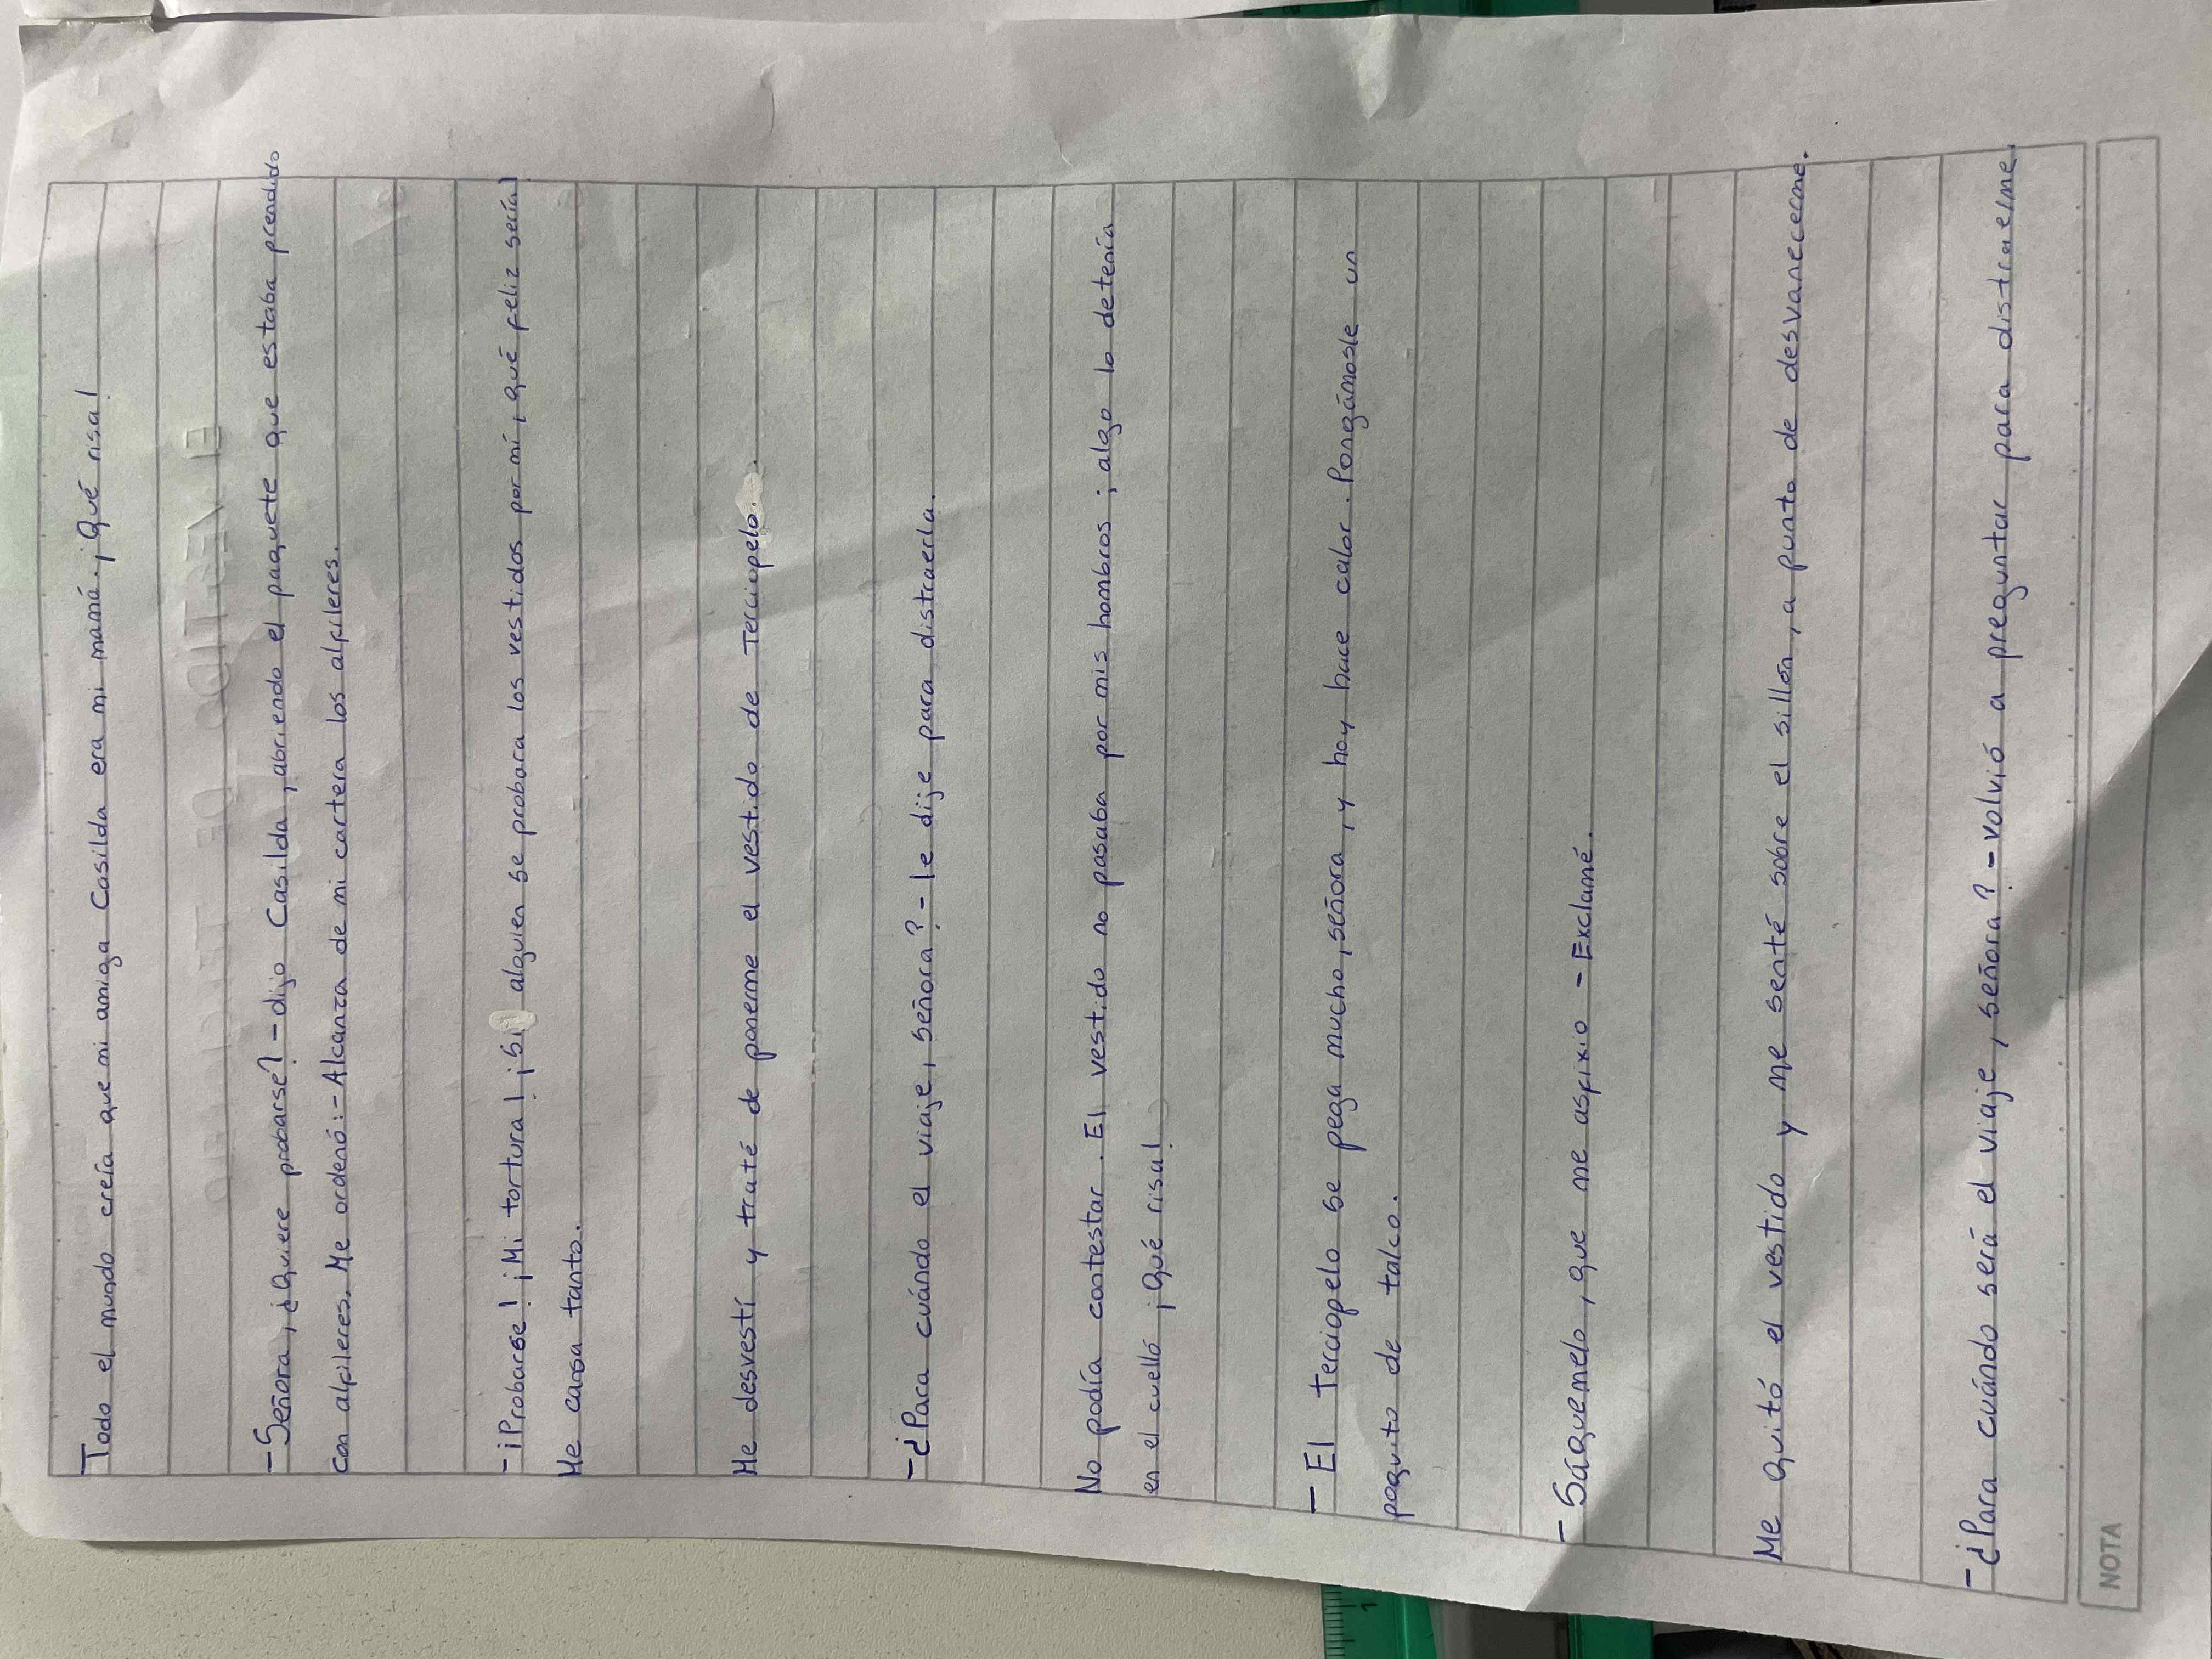 Todo el mundo creía que mi amiga Casilda era mi mamá. ¡Qué risa!
- Señora, ¿Quiere probarse? - dijo Casilda, abriendo el paquete que estaba prendido
con alfileres. Me ordenó: - Alcanza de mi cartera los alfileres.
- ¡Probarse! ¡Mi tortura! ¡Si alguien se probara los vestidos por mí, qué feliz sería!
Me cansa tanto.
Me desvestí y traté de ponerme el vestido de Terciopelo.
- ¿Para cuándo el viaje, señora? - le dije para distraerla.
No podía contestar. El vestido no pasaba por mis hombros; algo lo detenía
en el cuello ¡Qué risa!
- El Terciopelo se pega mucho, señora, y hoy hace calor. Pongámosle un
poquito de talco.
- Sáquemelo, que me asfixio - Exclamé.
Me Quitó el vestido y me senté sobre el sillón, a punto de desvanecerme.
- ¿Para cuándo será el viaje, señora? - volvió a preguntar para distraerme.
NOTA